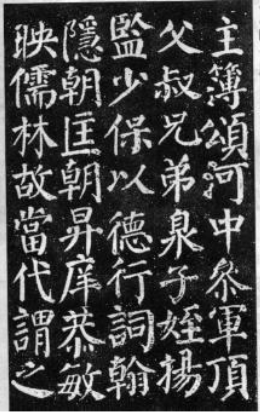 主簿頌河中叅軍頂
父叔兄弟泉子姪揚
監少保以德行詞翰
隱朝匡朝昇庠恭敏
映儒林故當代謂之